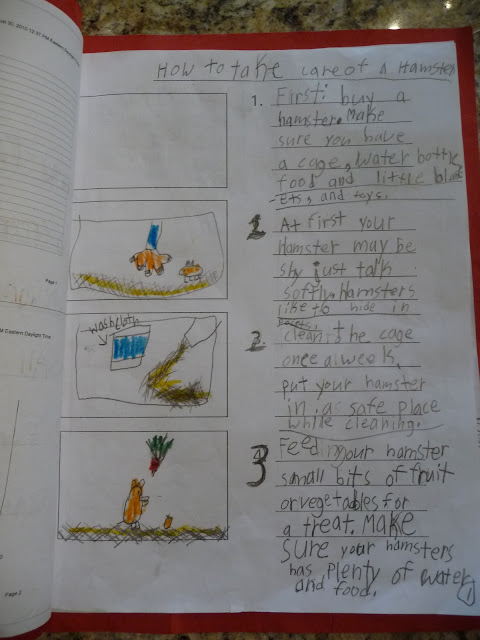 30, 2010 12:37 PM Eastern Daylight
How to take care of a Hamster
1. First: buy a
hamster. Make
sure you have
a cage, water bottle,
food and little blank
-ets, and toys.
2. At first your
Hamster may be
shy just talk
softly. Hamsters
like to hide in
Page 1
M Eastern Daylight Time
washcloth
2. clean the cage
once a week,
put your hamster
in a safe place
while cleaning.
3 Feed your hamster
small bits of fruit
or vegetables for
a treat. Make
sure your hamsters
has plenty of water
and food.
1
Page 2